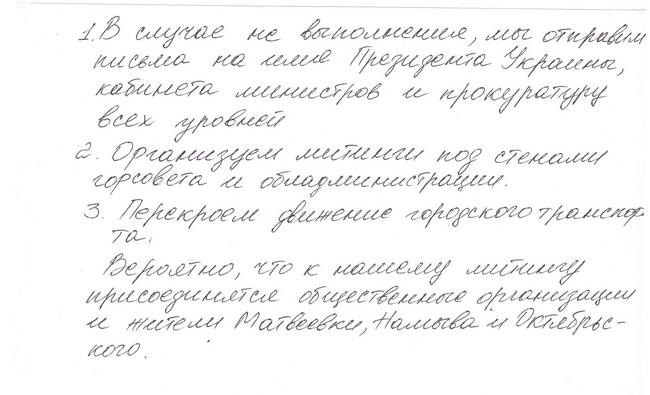 1. В случае не выполнения, мы отправим
письма на имя Президента Украины,
кабинета министров и прокуратуру
всех уровней
2. Организуем митинги под стенами
горсовета и обладминистрации.
3. Перекроем движение городского транспор
та.
Вероятно, что к нашему митингу
присоединятся общественные организации
и жители Матвеевки, Намыва и Октябрьс-
кого.